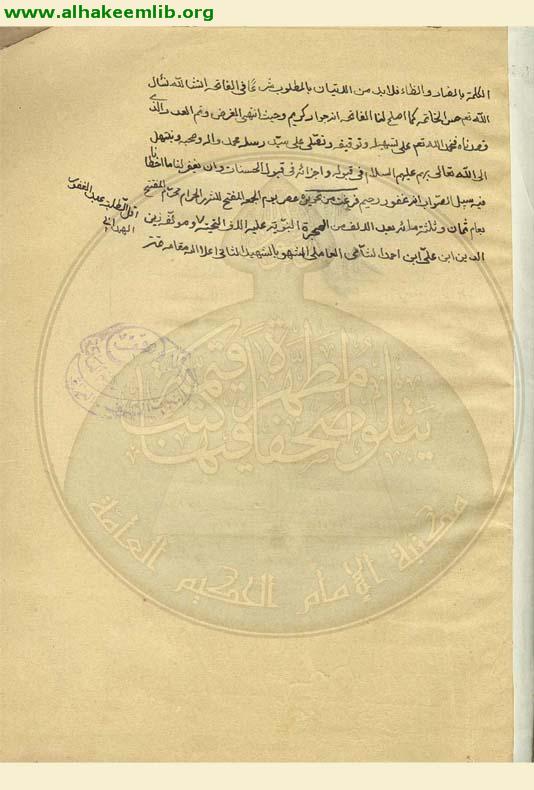 www.alhakeemlib.org
الكلمة بالضاد والظاء فلابد من الاتيان بالمطلوب شرعًا في الفاتحة انشاء الله نسأل
الله تعم حسن الخاتمه كما اصلح لنا الفاتحه انه جواد كريم وحيث انتهى الغرض وتم العدد الذي
قصدناه فنحمد الله تعم على تسهيله وتوفيقه ونصلى على سيّد رسله محمد واله وصحبه ونبتهل
الى الله تعالى بهم عليهم السلام فى قبوله واجزائه فى قبول الحسنات وان يغفر لنا ما اخطأنا
فيه سبيل الصواب انه غفور رحيم فرغت من تحريره عصر يوم الجمعة المفتح للشهر الحرام محرم المفتح
بعام ثمان وثلثة مائه بعد الالف من الهجرة النبويّة عليه الاف التحية ومؤلفه زين
الدين ابن على ابن احمد الشامى العاملى المشهور بالشهيد الثانى اعلا الله مقامه
اقل الطلبة عبد الغفور
الهمدانى
يتلو صحفا مطهرة فيها كتب قيمة
مكتبة الإمام الحكيم العامة